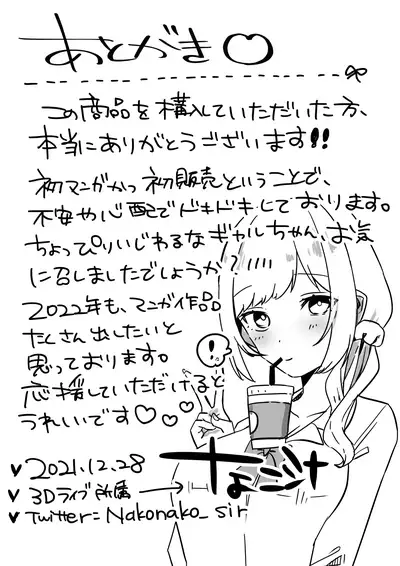 あとがき♡
この商品を購入していただいた方、
本当にありがとうございます!!
初マンガかつ初販売ということで、
不安や心配でドキドキしております。
ちょっぴりいじわるなギャルちゃん、お気
に召しましたでしょうか?
2022年も、マンガ作品
たくさん出したいと
思っております。
応援していただけると
うれしいです♡♡♡
!
♥2021.12.28
♥3Dライブ所属→
♥Twitter:Nakonako_sir